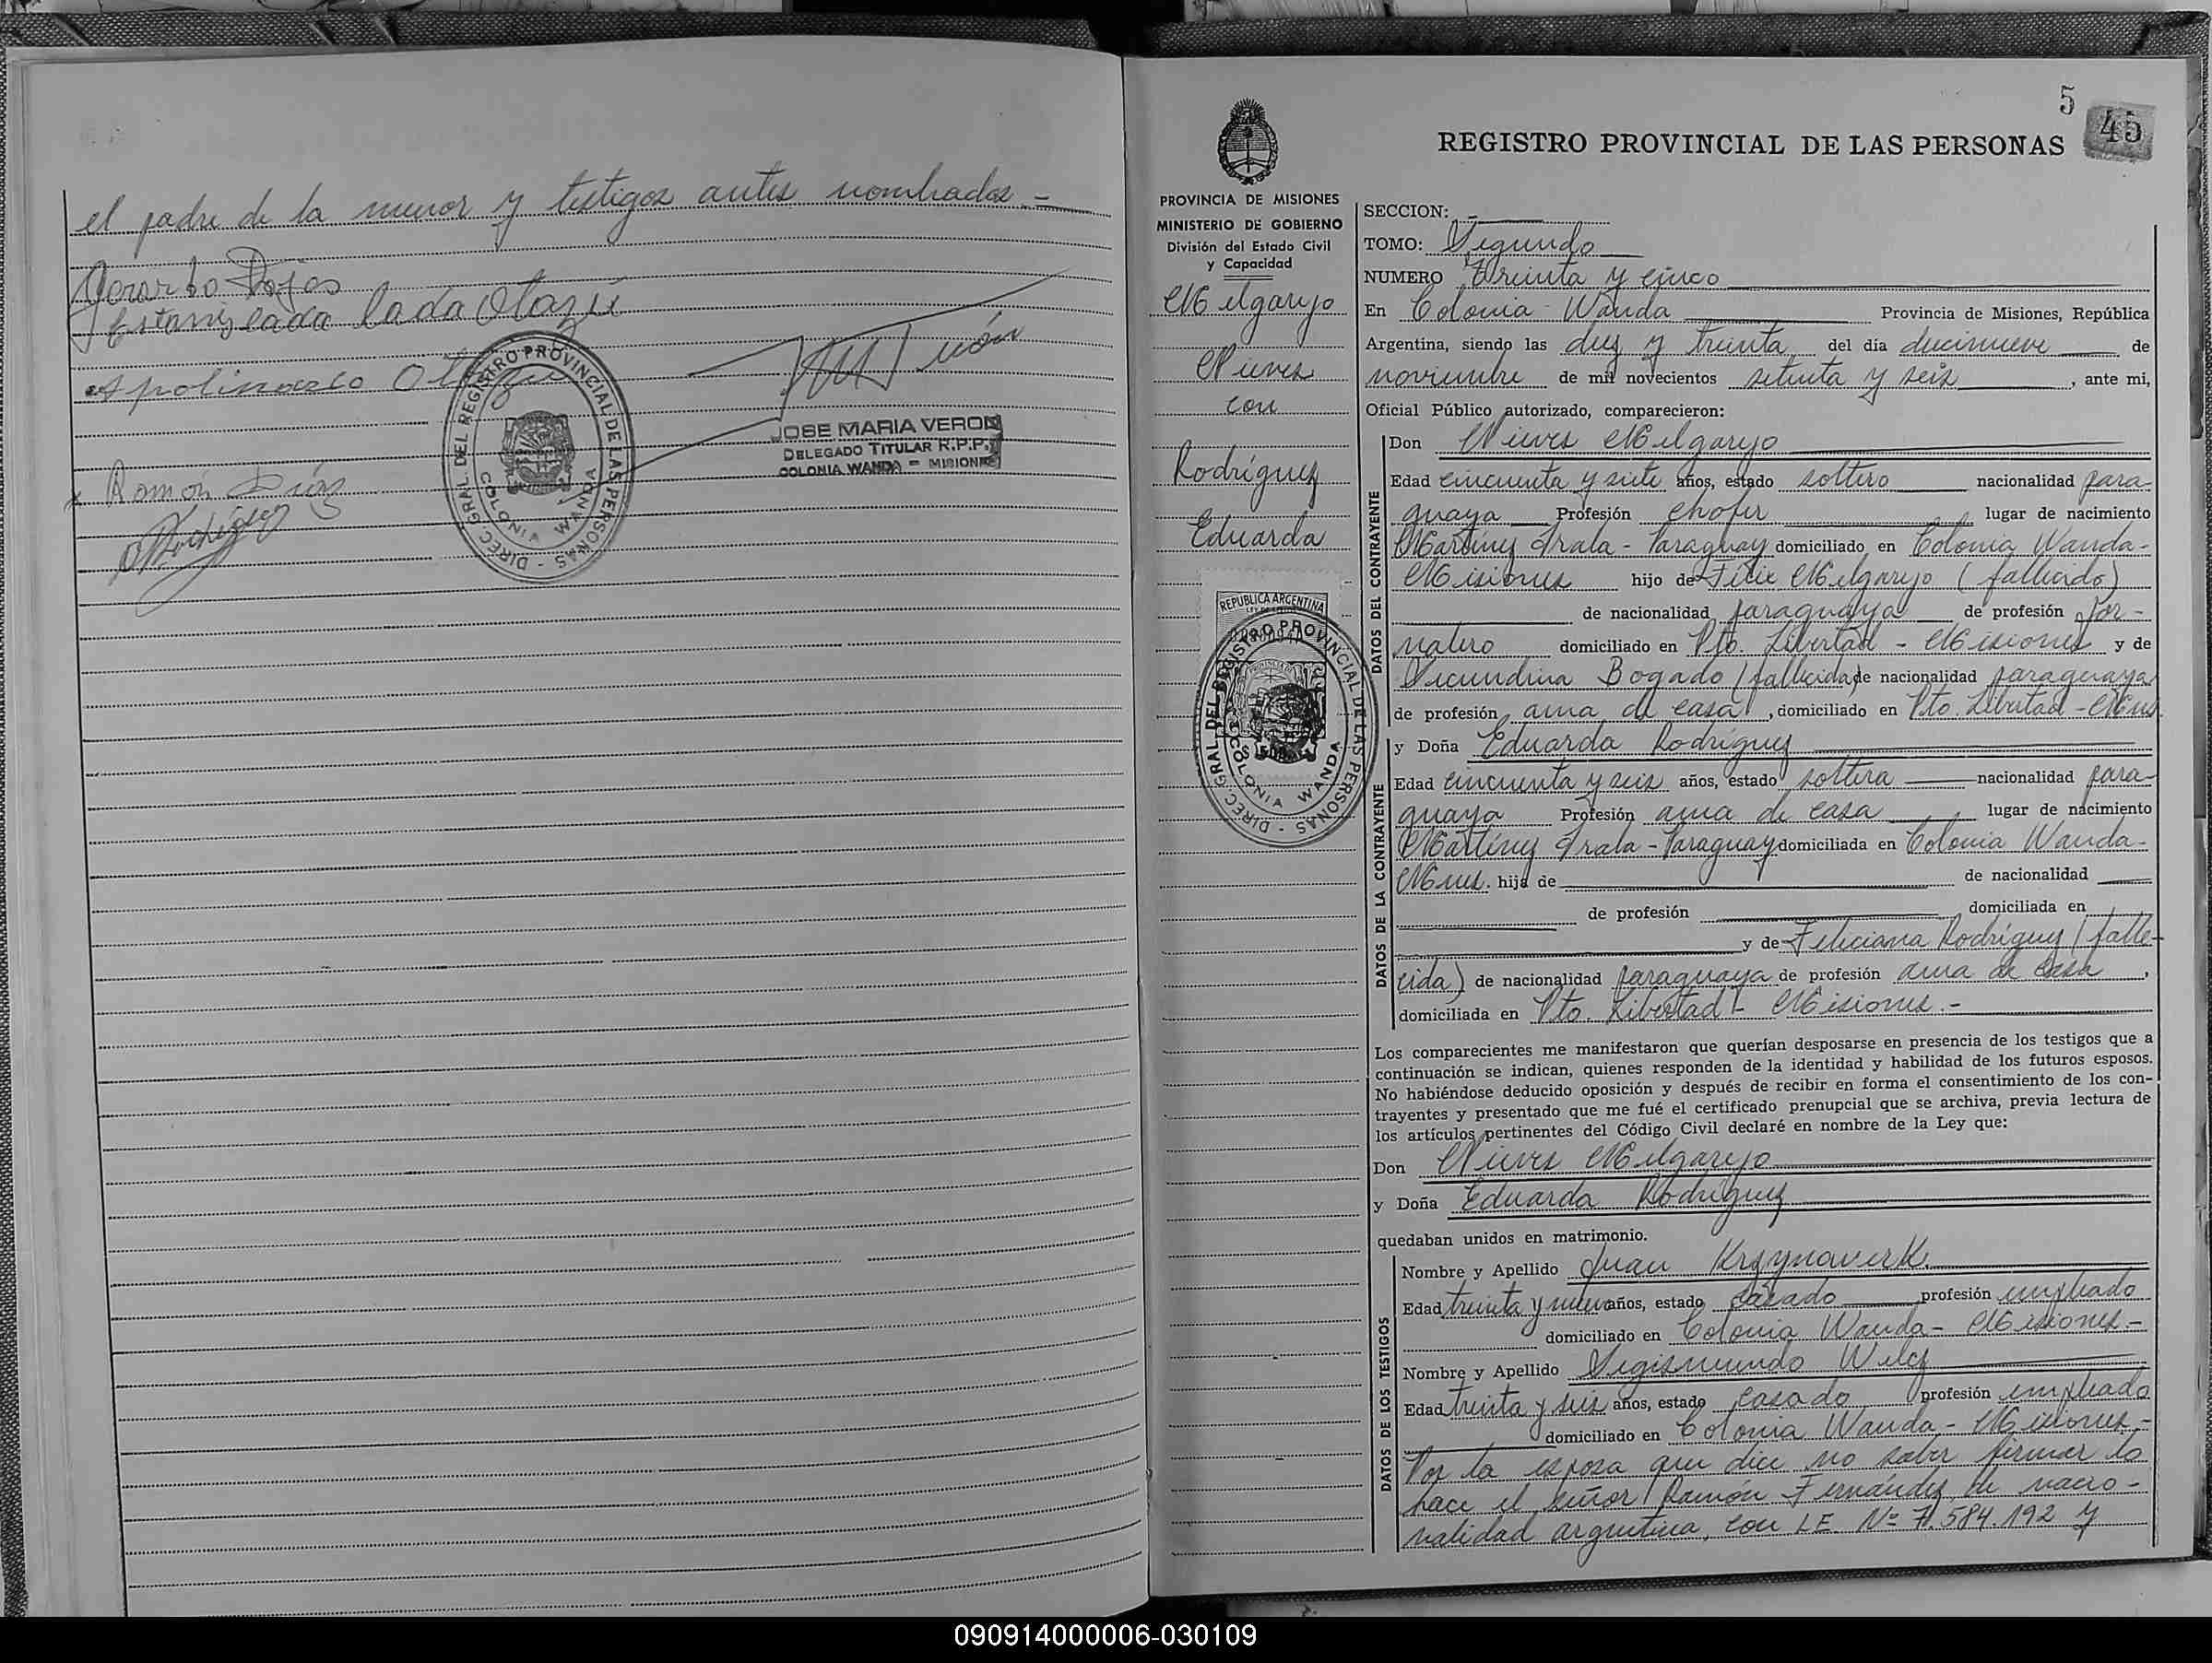 el padre de la menor y testigos antes nombrados.-
Gerardo Rojas
Estanislada lada Olazu
Apolinario
DIREC. GRAL DEL REGISTRO PROVINCIAL DE LAS PERSONAS
COLONIA WANDA
JOSE MARIA VERON
DELEGADO TITULAR R.P.P.
COLONIA WANDA - MISIONES
Ramón Díaz
5
45
REGISTRO PROVINCIAL DE LAS PERSONAS
PROVINCIA DE MISIONES
MINISTERIO DE GOBIERNO
División del Estado Civil
y Capacidad
Melgarejo
Nieves
con
Rodríguez
Eduarda
REPUBLICA ARGENTINA
DIREC. GRAL DEL REGISTRO PROVINCIAL DE LAS PERSONAS
COLONIA WANDA
SECCION: -
TOMO: Segundo
NUMERO Treinta y cinco
En Colonia Wanda Provincia de Misiones, República
Argentina, siendo las diez y treinta del día diecinueve de
noviembre de mil novecientos setenta y seis, ante mi,
Oficial Público autorizado, comparecieron:
DATOS DEL CONTRAYENTE
Don Nieves Melgarejo
Edad cincuenta y siete años, estado soltero nacionalidad para
guaya Profesión chofer lugar de nacimiento
Martínez Irala - Paraguay domiciliado en Colonia Wanda-
Misiones hijo de Félix Melgarejo (fallecido)
de nacionalidad paraguaya de profesión jor-
nalero domiciliado en Pto. Libertad - Misiones y de
Secundina Bogado (fallecida) de nacionalidad paraguaya
de profesión ama de casa, domiciliado en Pto. Libertad - Mnes.
DATOS DE LA CONTRAYENTE
y Doña Eduarda Rodríguez
Edad cincuenta y seis años, estado soltera nacionalidad para-
guaya Profesión ama de casa lugar de nacimiento
Martínez Irala - Paraguay domiciliada en Colonia Wanda-
Mnes. hija de de nacionalidad
de profesión domiciliada en
y de Feliciana Rodríguez (falle-
cida) de nacionalidad paraguaya de profesión ama de casa,
domiciliada en Pto. Libertad - Misiones.-
Los comparecientes me manifestaron que querían desposarse en presencia de los testigos que a
continuación se indican, quienes responden de la identidad y habilidad de los futuros esposos.
No habiéndose deducido oposición y después de recibir en forma el consentimiento de los con-
trayentes y presentado que me fué el certificado prenupcial que se archiva, previa lectura de
los artículos pertinentes del Código Civil declaré en nombre de la Ley que:
Don Nieves Melgarejo
y Doña Eduarda Rodríguez
quedaban unidos en matrimonio.
DATOS DE LOS TESTIGOS
Nombre y Apellido Juan
Edad treinta y nueve años, estado casado profesión empleado
domiciliado en Colonia Wanda - Misiones.-
Nombre y Apellido Segismundo Wilcz
Edad treinta y seis años, estado casado profesión empleado
domiciliado en Colonia Wanda - Misiones.-
Por la esposa que dice no saber firmar lo
hace el señor Ramón Fernández de nacio-
nalidad argentina, con LE. Nº 7.584.192 y
090914000006-030109